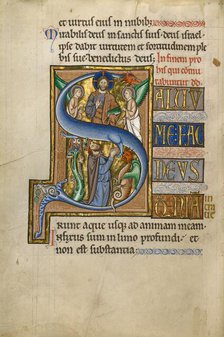 et uirtus eius in nubib;
Mirabilis deus in sanctis suis deus israel
ipse dabit uirtutem et fortitudinem ple
bis sue benedictus deus; In finem
SALVU
ME FAC
DEUS
QNIA
in
traue
runt aque usq; ad animam meam
Infixus sum in limo profundi et
non est substantia;